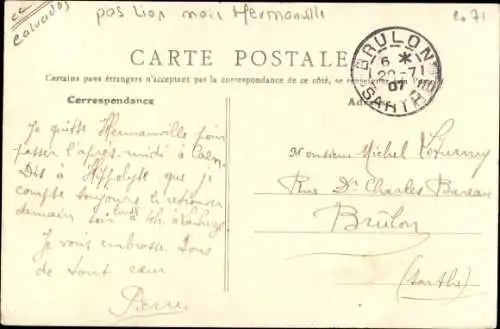 cc
Calvados
pas Lion mais Hermanville
CARTE POSTALE
Certains pays étrangers n'acceptent pas la correspondance de ce côté, se renseigner
BRULON
6 *
20-7
07
SARTHE
Correspondance
Je quitte Hermanville pour
passer l'après-midi à Caen
Dis à Hippolyte que je
compte toujours le retrouver
lundi
demain soir à 4h. à
Je vous embrasse tous
de tout cœur
Pierre
Monsieur Michel
Rue Dr Charles
Brûlon
(Sarthe)